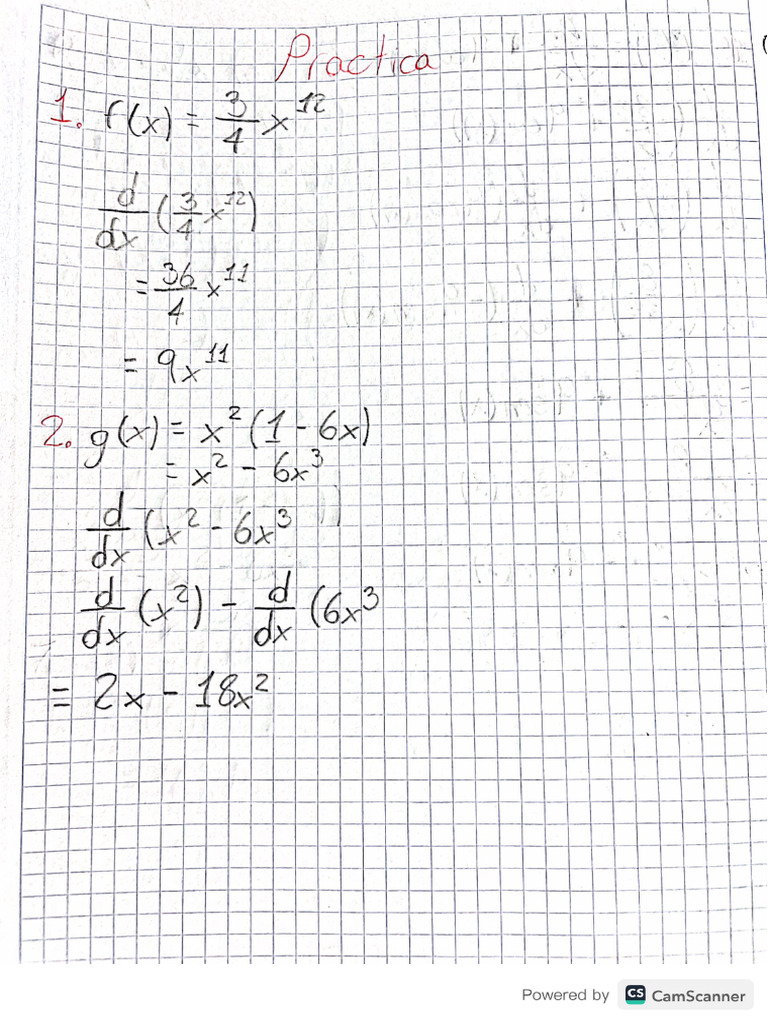 Practica
1. f(x) = 3/4 x^12
d/dx (3/4 x^12)
= 36/4 x^11
= 9x^11
2. g(x) = x^2 (1 - 6x)
= x^2 - 6x^3
d/dx (x^2 - 6x^3
d/dx (x^2) - d/dx (6x^3
= 2x - 18x^2
Powered by CS CamScanner